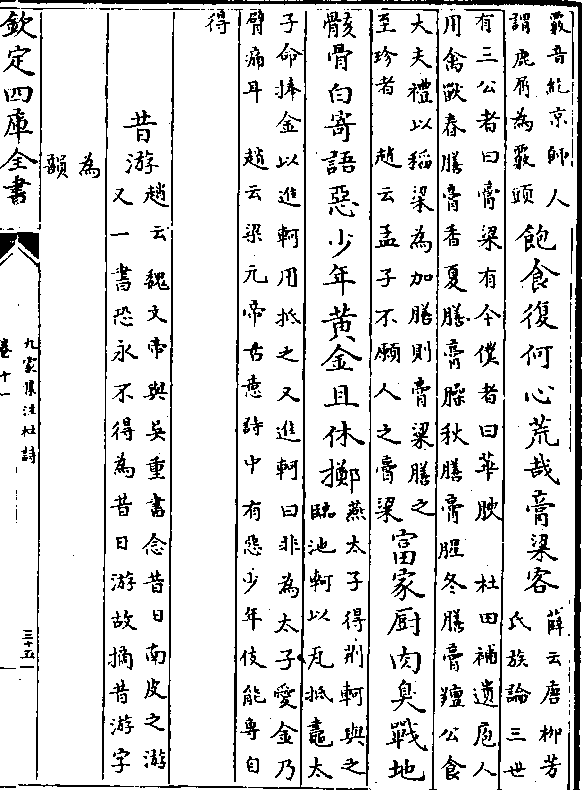 覈音紇京師人
謂鹿屑為覈頭
飽食復何心荒哉膏粱客
薛云唐柳芳
氏族論三世
有三公者曰膏粱有令僕者曰華腴　杜田補遺庖人
用禽獸春膳膏香夏膳膏臊秋膳膏腥冬膳膏羶公食
大夫禮以稻粱為加膳則膏粱膳之
至珍者　趙云孟子不願人之膏粱
富家厨肉臭戰地
骸骨白寄語惡少年黄金且休擲
燕太子得荆軻與之
臨池軻以瓦抵鼃太
子命捧金以進軻用抵之又進軻曰非為太子愛金乃
臂痛耳　趙云梁元帝古意詩中有惡少年伎能專自
得
昔游
趙云魏文帝與吳重書念昔日南皮之游
又一書恐永不得為昔日游故摘昔游字
為
韻
欽定四庫全書
九家集注杜詩
卷十一
三十五